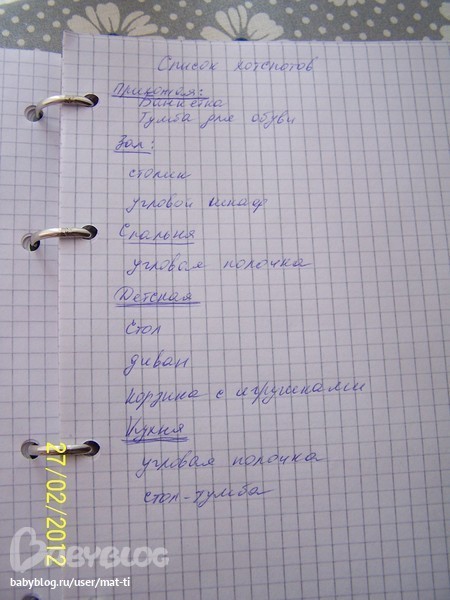 Список хотспотов
Прихожая:
Банкетка
Тумба для обуви
Зал:
столик
угловой шкаф
Спальня
угловая полочка
Детская
Стол
диван
корзина с игрушками
Кухня
угловая полочка
стол-тумба
27/02/2012
BABYBLOG
babyblog.ru/user/mat-ti